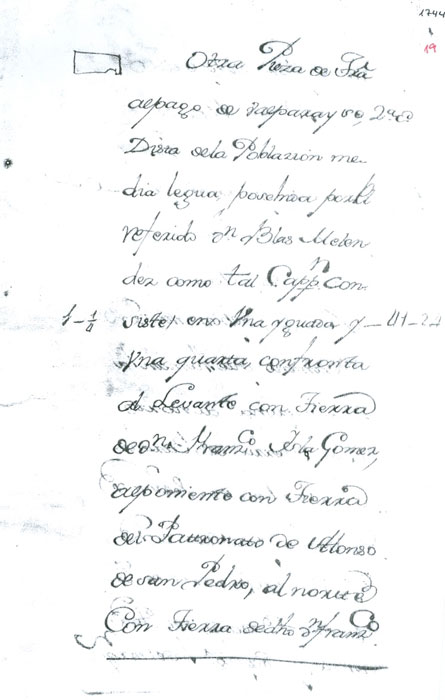 1744
19
Otra Pieza de Trª
al pago de Valparayso, que
Dista dela Poblazion me
dia legua, posehida por el
referido Dn Blas Melen
dez como tal Cappn Con
1-1/4 siste, en Vna yguada y
Vna quarta, confronta
al Levante con Tierra
de Dn Franco Gomez,
al poniente con Tierra
del Patronato de Alonso
de san Pedro, al norte
Con Tierra de dho Dn Franco